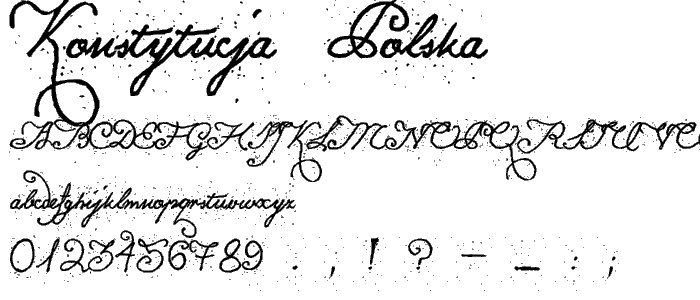 Konstytucja Polska
ABCDEFGHIJKLMNOPQRSTUVW
abcdefghijklmnopqrstuvwxyz
0123456789 . , ! ? – _ : ;